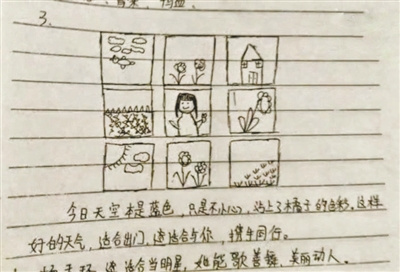 3.
今日天空本是蓝色,只是不小心,沾上了橘子的色彩。这样
好的天气,适合出门,还适合与你,携手同行。
适合当明星,如能歌善舞,美丽动人。